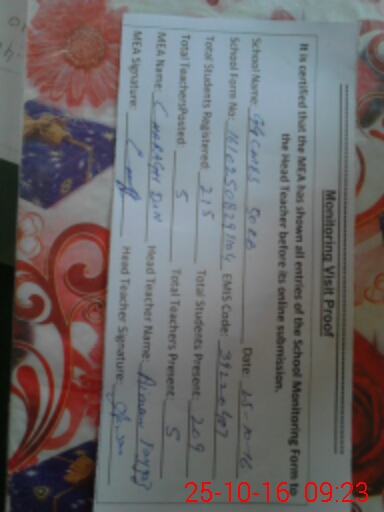 Monitoring Visit Proof
It is certified that the MEA has shown all entries of the School Monitoring Form to
the Head Teacher before its online submission.
School Name: Date: 25-10-16
School Form No: EMIS Code:
Total Students Registered: 215 Total Students Present: 209
Total TeachersPosted: 5 Total Teachers Present: 5
MEA Name: CHARAGH DIN Head Teacher Name:
MEA Signature: Head Teacher Signature:
25-10-16 09:23